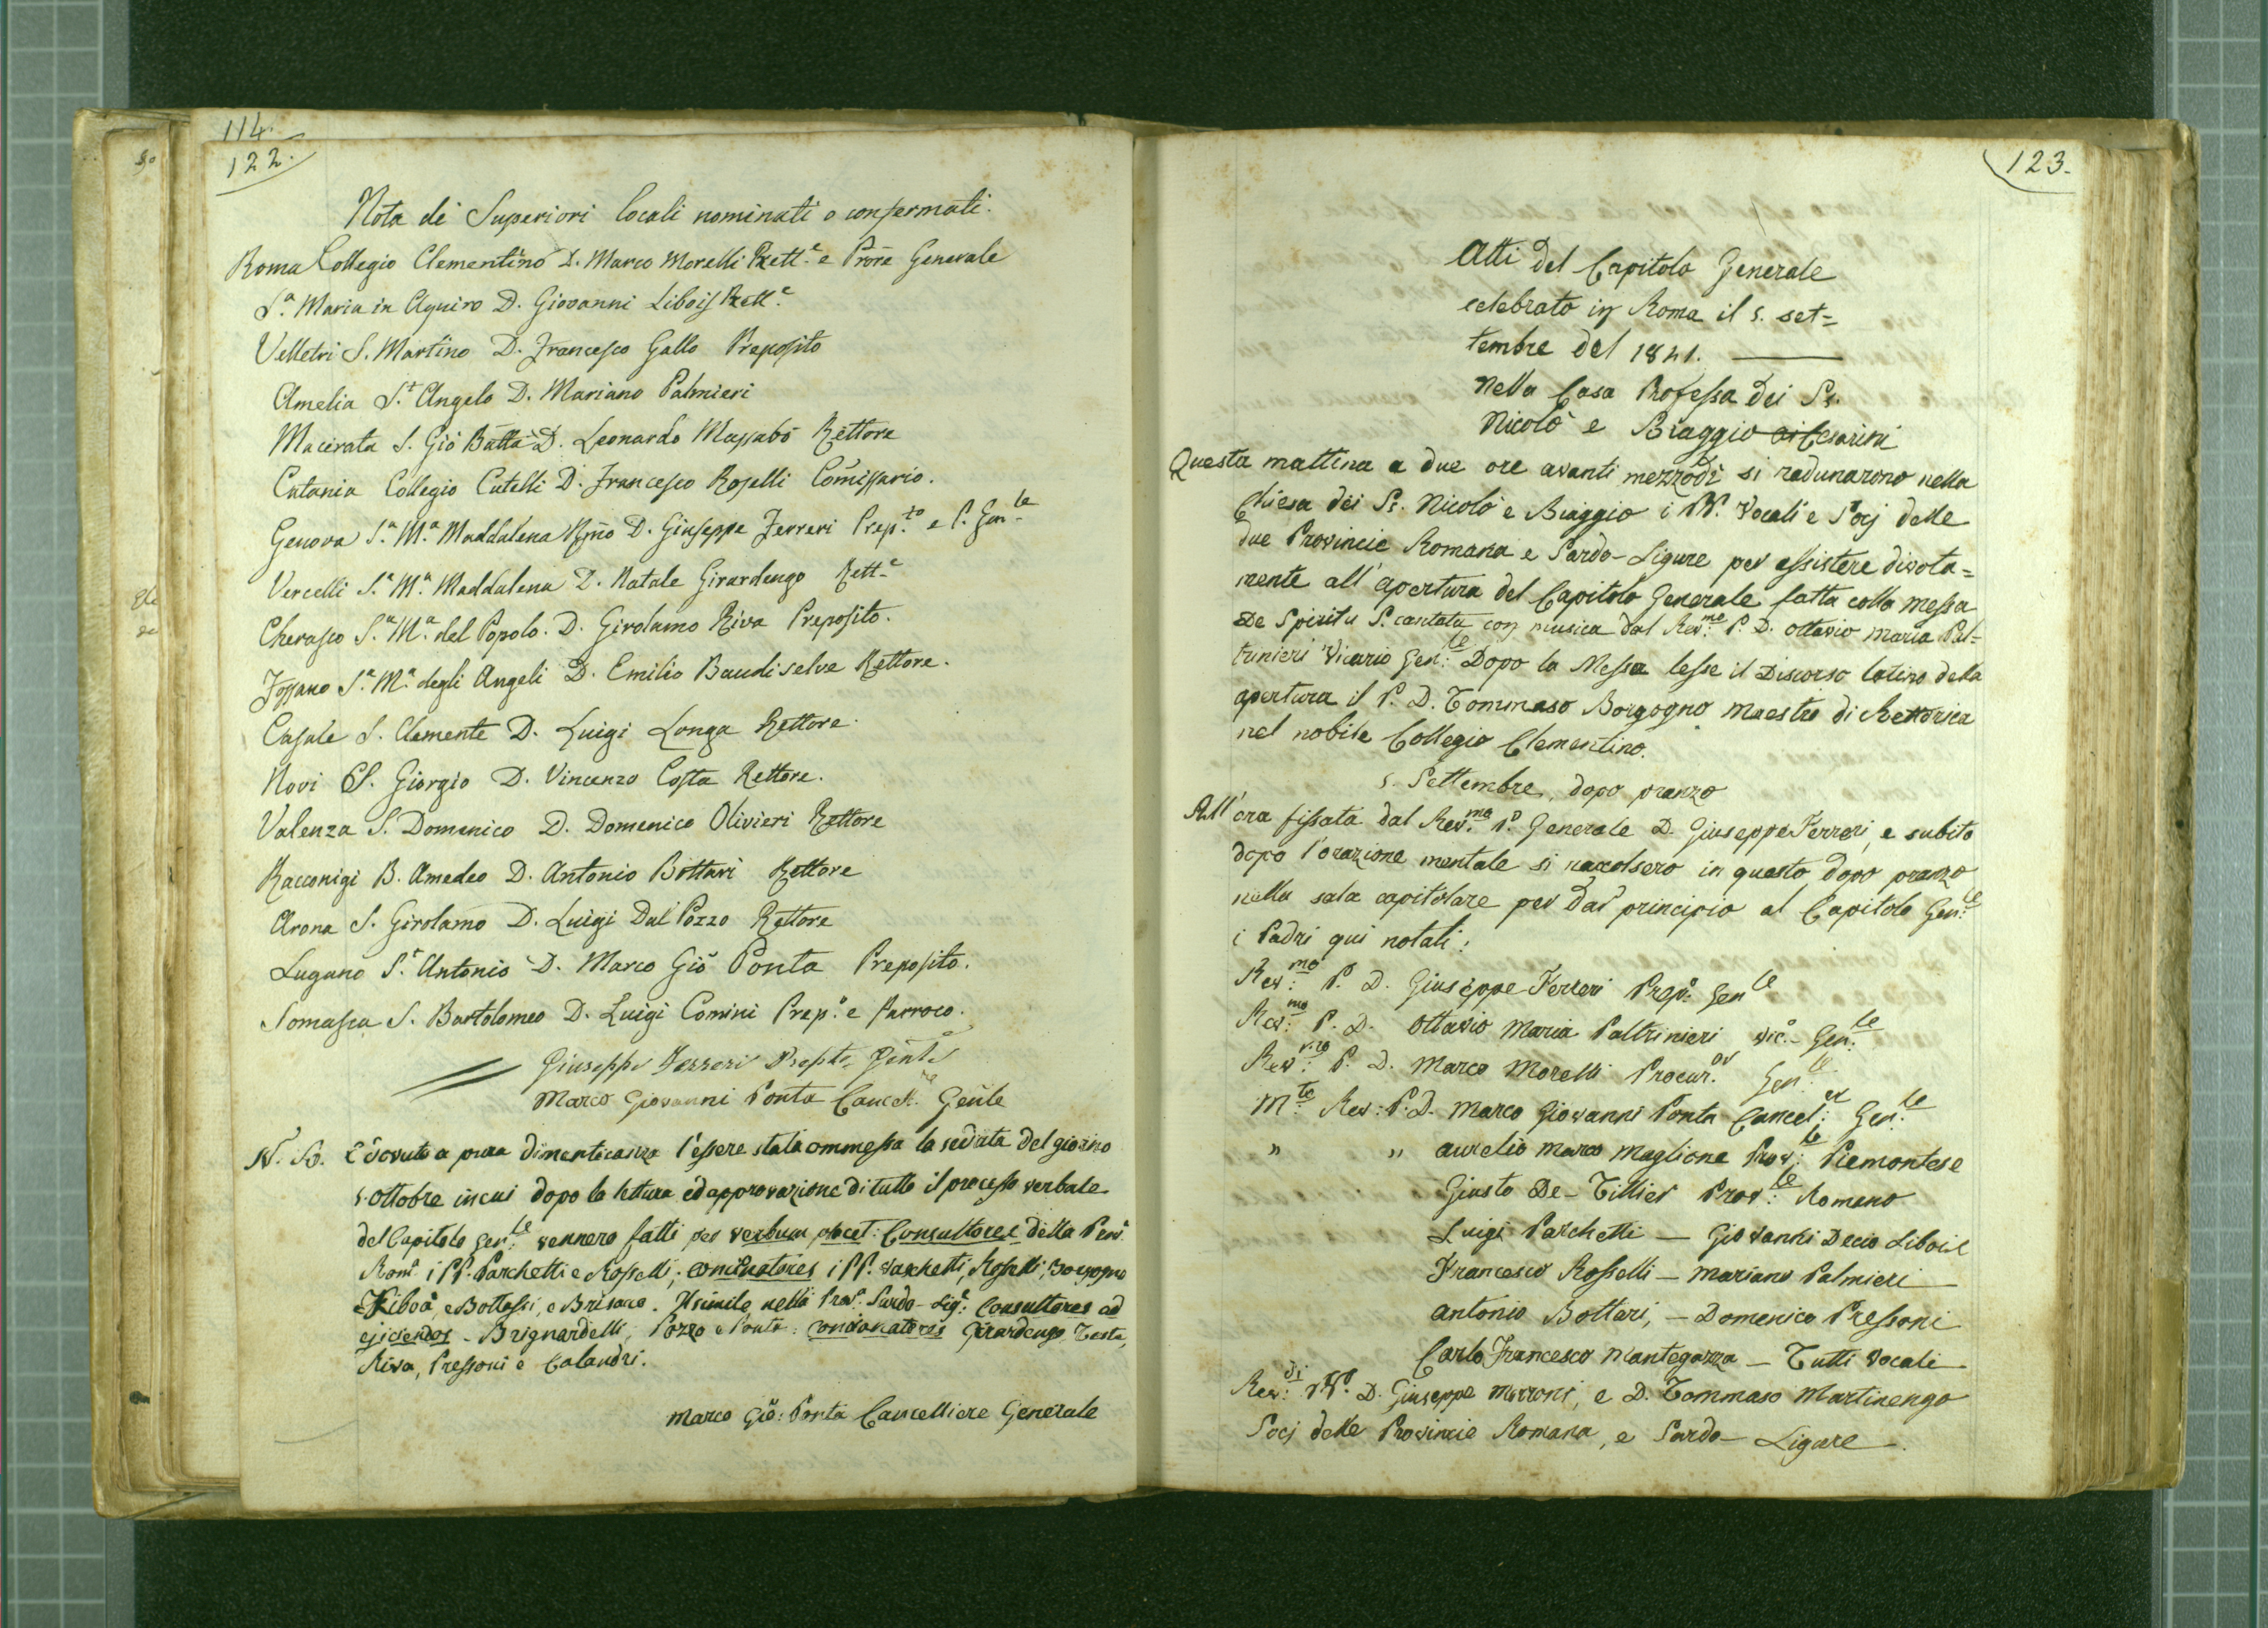 114.
122.
Nota dei Superiori locali nominati o confermati.
Roma Collegio Clementino D. Marco Morelli Rett.e e Prōre Generale
S.a Maria in Aquiro D. Giovanni Libois Rett.e
Velletri S. Martino D. Francesco Gallo Preposito
Amelia S.t Angelo D. Mariano Palmieri
Macerata S. Gio Batta D. Leonardo Massabò Rettore
Catania Collegio Cutelli D. Francesco Roselli Comissario.
Genova S.a M.a Maddalena Rmo D. Giuseppe Ferreri Prep.to e P. Gen.le
Vercelli S.a M.a Maddalena D. Natale Girardengo Rett.e
Cherasco S.a M.a del Popolo. D. Girolamo Riva Preposito.
Fossano S.a M.a degli Angeli D. Emilio Baudi selve Rettore.
Casale S. Clemente D. Luigi Longa Rettore.
Novi S. Giorgio D. Vincenzo Costa Rettore.
Valenza S. Domenico D. Domenico Olivieri Rettore
Racconigi B. Amedeo D. Antonio Bottari Rettore
Arona S. Girolamo D. Luigi Dal Pozzo Rettore
Lugano S.t Antonio D. Marco Gio Ponta Preposito.
Somasca S. Bartolomeo D. Luigi Comini Prep.o e Parroco.
Giuseppe Ferreri Prepto Gente
Marco Giovanni Ponta Cancell.re Genle
N. B. È dovuto a pura dimenticanza l'essere stata ommessa la seduta del giorno
5 ottobre in cui dopo la lettura ed approvazione di tutto il processo verbale
del Capitolo Gen:le vennero fatti per verbum placet: Consultores della Prov.a
Rom.a i PP. Parchetti e Rosselli; concionatores i PP. Parchetti, Rosselli, Borgogno
Liboà, e Bottassi, e Brisacco. Il simile nella Prov.a Sardo-Lig.e Consultores ad
ejiciendos - Brignardelli, Pozzo e Ponta: concionatores Girardengo, Testa,
Riva, Pressoni e Calandri.
Marco Gio: Ponta Cancelliere Generale
123.
Atti del Capitolo Generale
celebrato in Roma il 5. set=
tembre del 1841.
Nella Casa Professa dei Ss.
Nicolò e Biaggio ai Cesarini
Questa mattina a due ore avanti mezzodì si radunarono nella
Chiesa dei Ss. Nicolò e Biaggio i PP. Vocali e Socj delle
due Provincie Romana e Sardo-Ligure per assistere divota=
mente all'apertura del Capitolo Generale fatta colla Messa
de Spiritu S. cantata con musica dal Rev:mo P. D. Ottavio Maria Pal=
trinieri Vicario Gen:le Dopo la Messa lesse il Discorso latino della
apertura il P. D. Tommaso Borgogno Maestro di Rettorica
nel nobile Collegio Clementino.
5. Settembre, dopo pranzo
All'ora fissata dal Rev:mo P. Generale D. Giuseppe Ferreri, e subito
dopo l'orazione mentale si raccolsero in questo dopo pranzo
nella sala capitolare per dar principio al Capitolo Gen:le
i Padri qui notati:
Rev:mo P. D. Giuseppe Ferreri Prep.o Gen.le
Rev:mo P. D. Ottavio Maria Paltrinieri Vic.o Gen:le
Rev:mo P. D. Marco Morelli Procur:or Gen:le
M:to Rev: P. D. Marco Giovanni Ponta Cancel:er Gen:le
" " Aurelio Marco Maglione Prov:le Piemontese
Giusto De-Tillier Prov:le Romano
Luigi Parchetti — Giovanni Decio Libois
Francesco Rosselli — Mariano Palmieri
Antonio Bottari, — Domenico Pressoni
Carlo Francesco Mantegazza — Tutti Vocali
Rev:di PP. D. Giuseppe Morroni, e D. Tommaso Martinengo
Socj delle Provincie Romana, e Sardo-Ligure